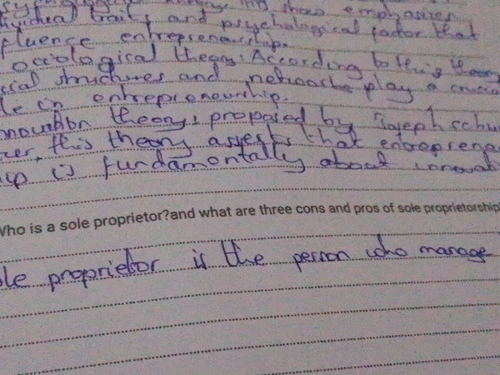 theory show emphasizes
traits and psychological factor that
fluence entrepreneurship.
ociological theory: According to this theory
structures and networks play a crucial
in entrepreneurship.
nnovation theory: proposed by Joseph schu
this theory asserts that entreprene
is fundamentally about innovat
Who is a sole proprietor?and what are three cons and pros of sole proprietorship?
ole proprietor is the person who manage